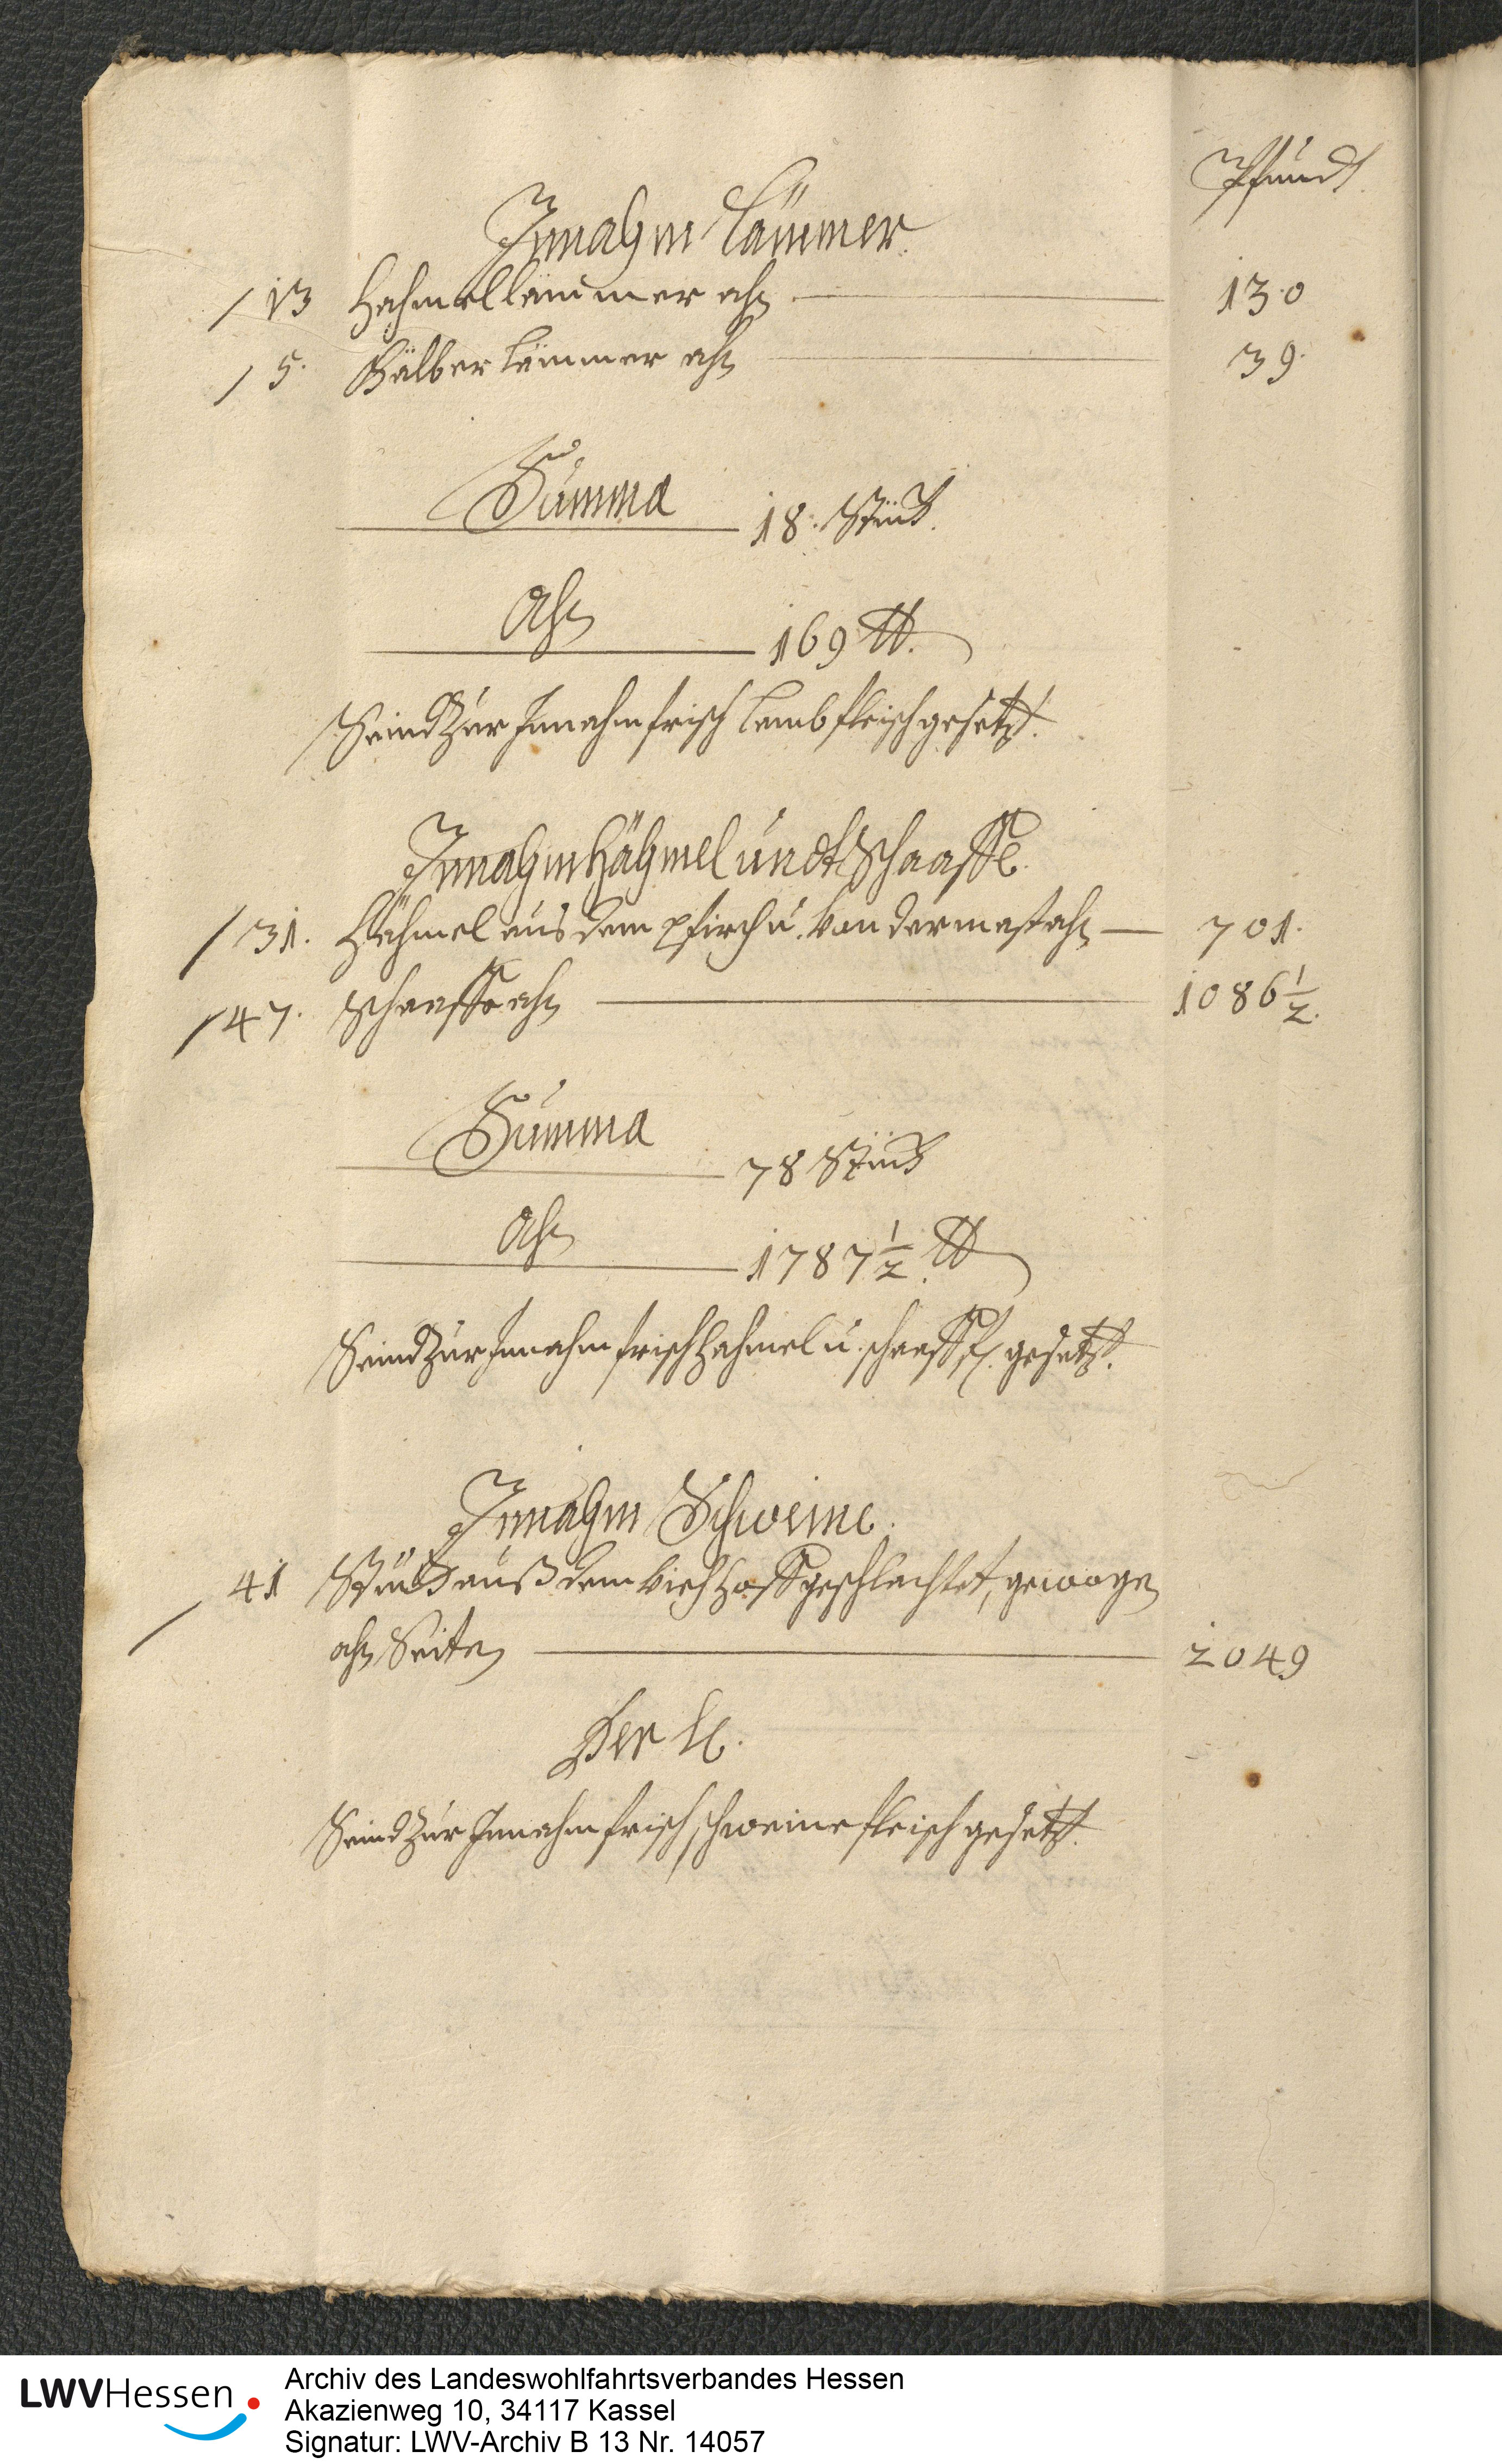 Pfundt
Innahm Lämmer.
13 Hahmellämmer ahn 130
5. Kälberlämmer ahn 39.
Summa 18. Stück.
Ahn 169 ℔.
Seind zur Innahm frisch Lambfleisch gesetzt.
Innahm Hähmel undt Schaaffe.
31. Hähmel aus dem Pfirch u. von der mast ahn 701.
47. Schaaffe ahn 1086 1/2.
Summa 78 Stück
Ahn 1787 1/2. ℔
Seind zur Innahm frisch Hahmel u. schaaff fl. gesetzt.
Innahm Schweine.
41 Stück auß dem Viehhoff geschlachtet, gewogen
ahn Seiten 2049
Per se.
Seind zur Innahm frisch schweinefleisch gesetzt.
LWVHessen
Archiv des Landeswohlfahrtsverbandes Hessen
Akazienweg 10, 34117 Kassel
Signatur: LWV-Archiv B 13 Nr. 14057